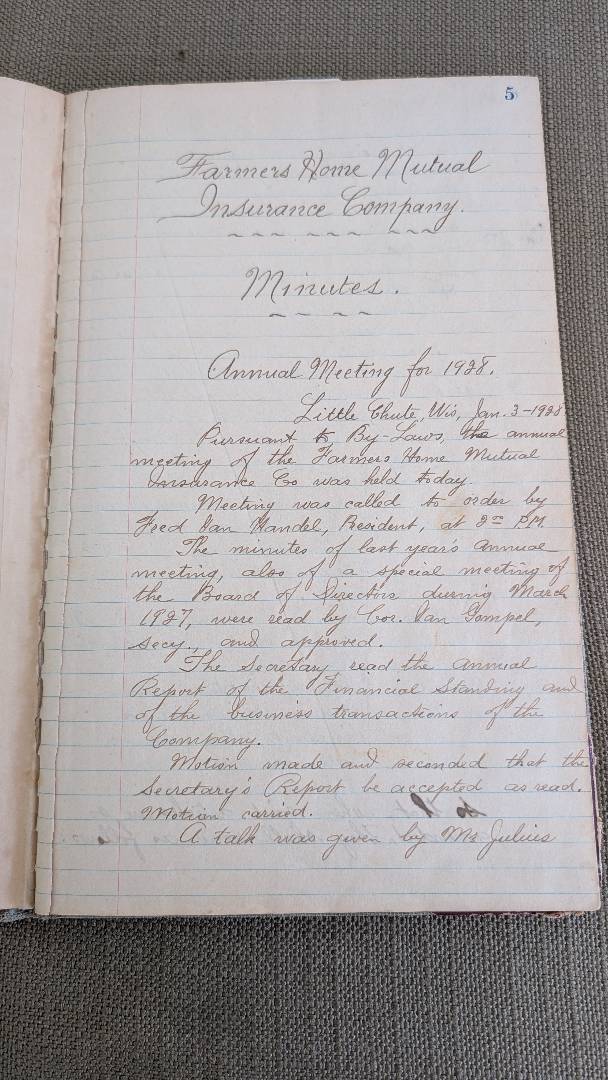 5
Farmers Home Mutual
Insurance Company.
Minutes.
Annual Meeting for 1928.
Little Chute, Wis, Jan. 3-1928
Pursuant to By-Laws, the annual
meeting of the Farmers Home Mutual
Insurance Co was held today.
Meeting was called to order by
Fred Van Handel, President, at 2ºº PM
The minutes of last year's annual
meeting, also of a special meeting of
the Board of Directors during March
1927, were read by Cor. Van Gompel,
secy., and approved.
The Secretary read the annual
Report of the Financial Standing and
of the business transactions of the
Company.
Motion made and seconded that the
Secretary's Report be accepted as read.
Motion carried.
A talk was given by Mr Julius